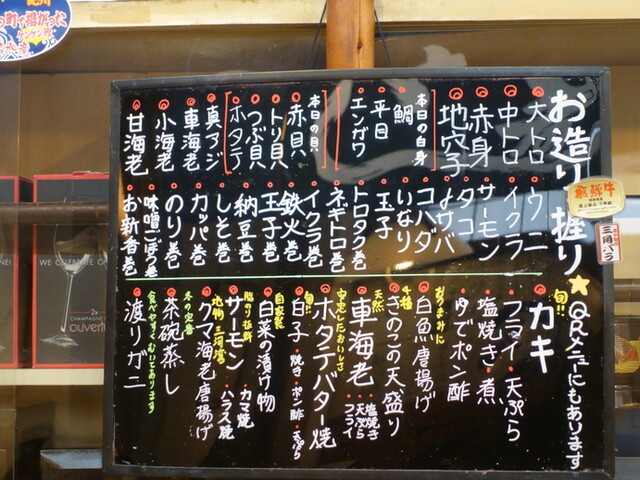 お造り 握り★QRメニューにもあります
飛騨牛
三角バラ
大トロ
中トロ
赤身
地穴子
本日の白身
鯛
平目
エンガワ
本日の貝
赤貝
トリ貝
つぶ貝
ホタテ
真アジ
車海老
小海老
甘海老
ウニ
イクラ
サーモン
タコ
〆サバ
コハダ
いなり
玉子
トロタク巻
ネギトロ巻
イクラ巻
鉄火巻
玉子巻
納豆巻
しそ巻
カッパ巻
のり巻
味噌ごぼう巻
お新香巻
旬!!
カキ
フライ・天ぷら
塩焼き・煮
ゆでポン酢
おつまみに
白魚唐揚げ
4種
きのこの天盛り
天然
車海老
塩焼き
天ぷら
フライ
安定したおいしさ
ホタテバタ焼
旬!!
白子 焼き・ポン酢・天ぷら
自家製
白菜の漬け物
脂のり抜群
サーモン カマ焼
ハラス焼
地物 三河湾
クマ海老唐揚げ
冬の定番
茶碗蒸し
食べやすくむいてあります
渡りガニ
WE CELEBRATE
2x
CHAMPAGNE
ouverture